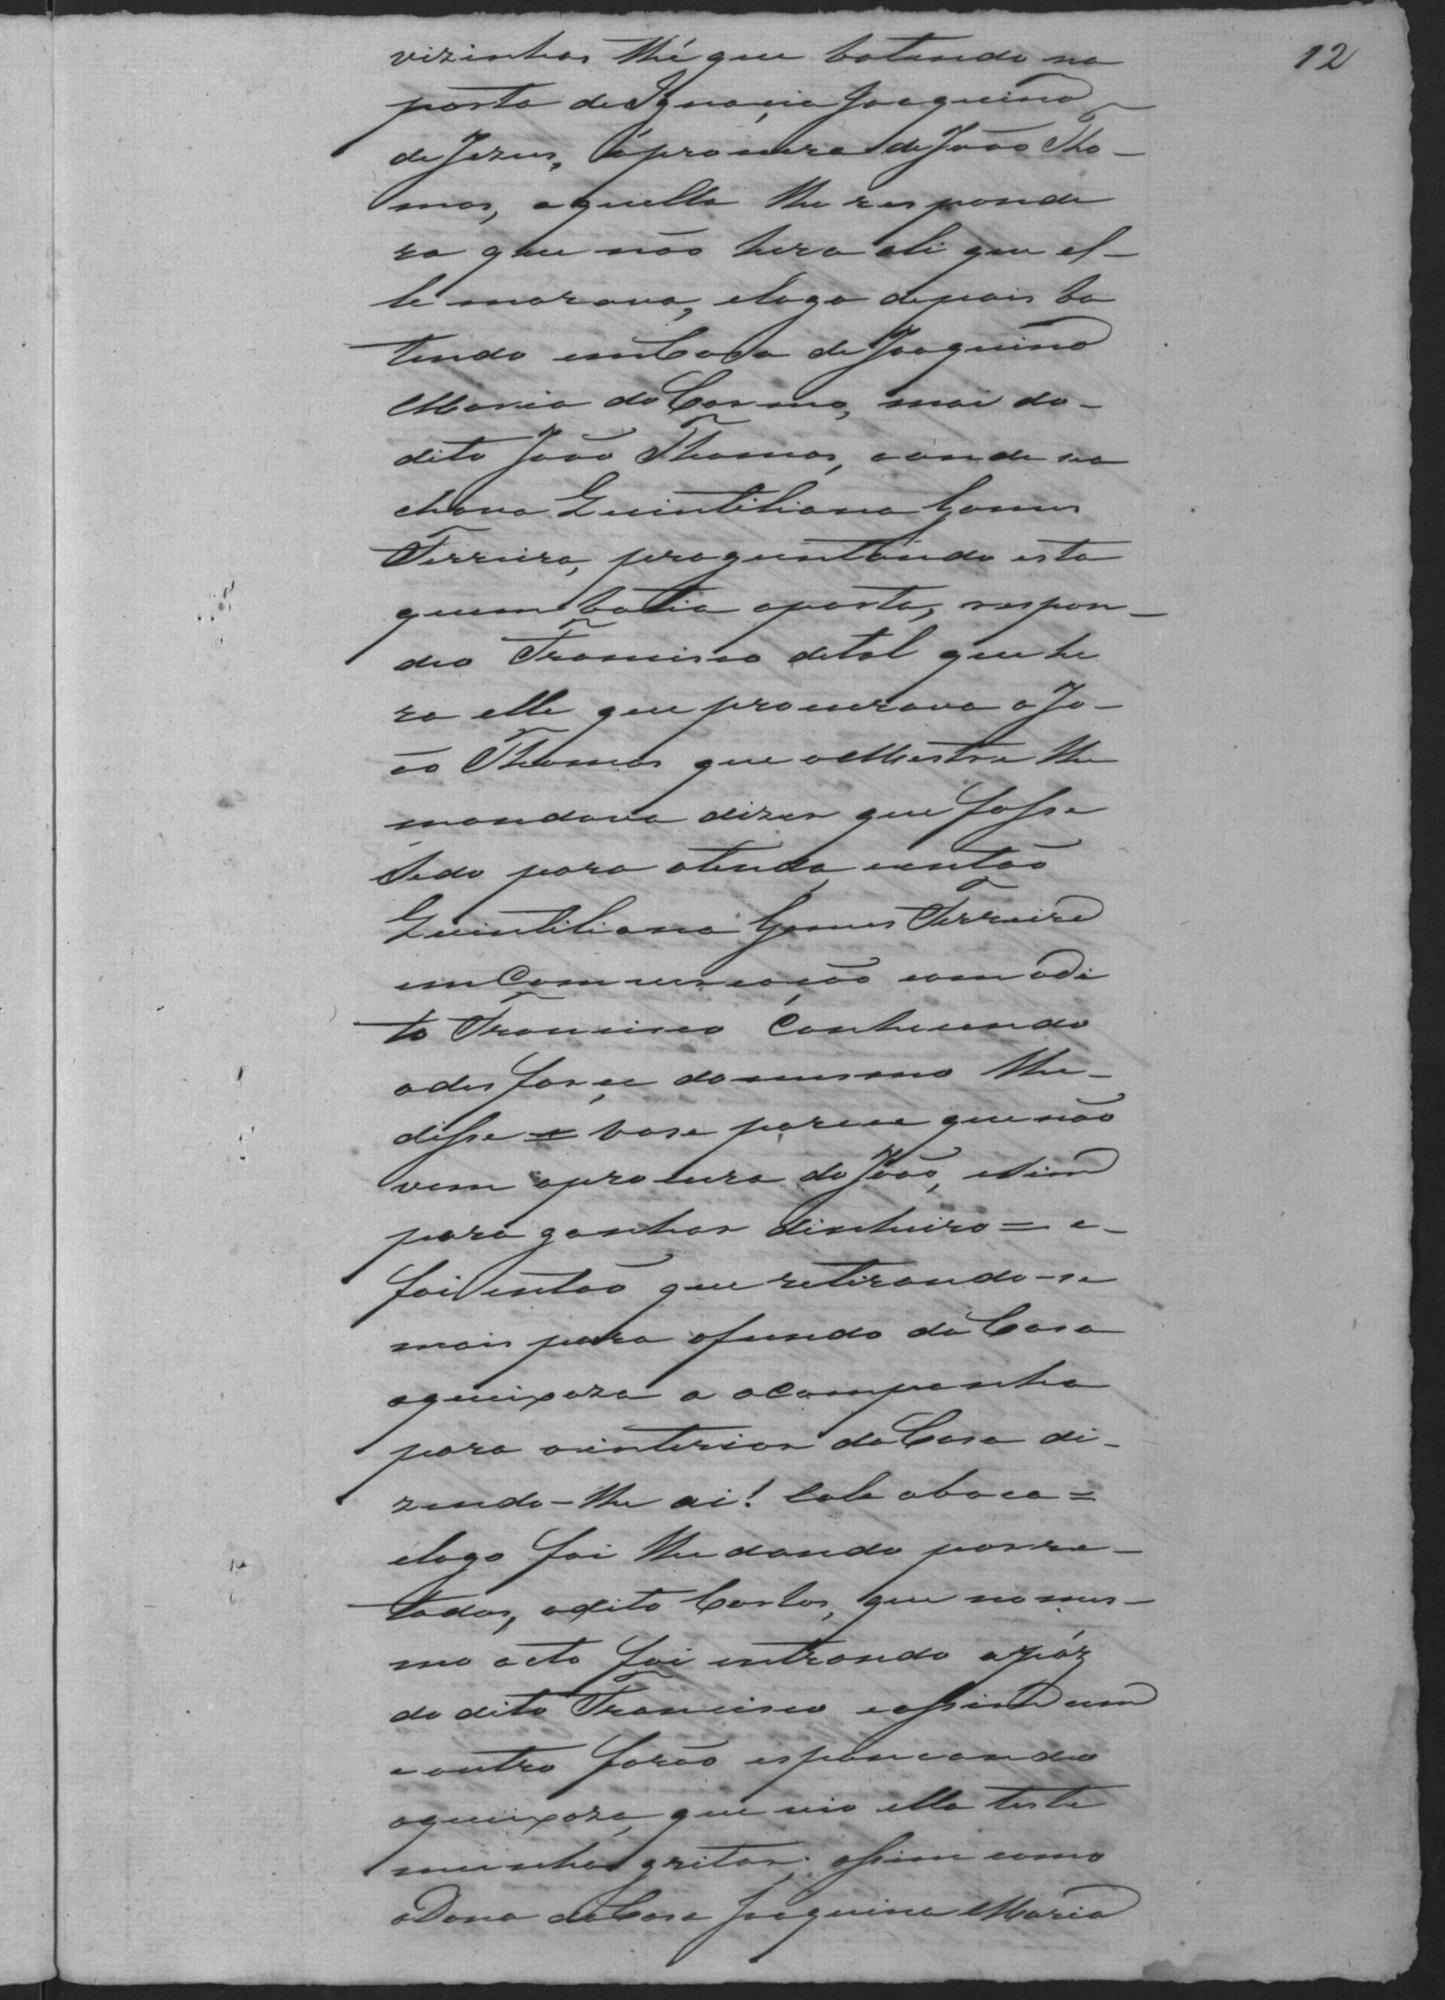 12
vizinhas thé que batendo na
porta de Ignacia Joaquina
de Jezus, áprocura de João Tho-
mas, aquella lhe responde
ra que não hera ali que el-
le morava, elogo depois ba
tendo em Casa de Joaquina
Maria do Carmo, mai do-
dito João Thomas, aonde sea
chava Quintiliana Gomes
Ferreira, proguntando esta
quem batia aporta, respon-
deo Francisco detal que he
ra elle que procurava a Jo-
ão Thomas que oMestre lhe
mandava dizer que fosse
sedo para atenda, eentão
Quintiliana Gomes Ferreira
em Comversação com odi
to Francisco Conhecendo
odesfarce domesmo lhe-
disse = vose parece que não
vem aprocura do João, e sim
para ganhar dinheiro = e-
foi então que retirando-se
mais para ofundo da Casa
aqueixoza a acompanha
para ointerior da Casa di-
zendo-lhe ai! Cale aboca =
elogo foi lhe dando porre-
tadas, odito Carlos, que nomes-
mo acto foi entrando apóz
do dito Francisco eassim um
e outro forão espancando
aqueixoza, que vio ella teste
munha gritar, assim como
aDona da Casa Joaquina Maria